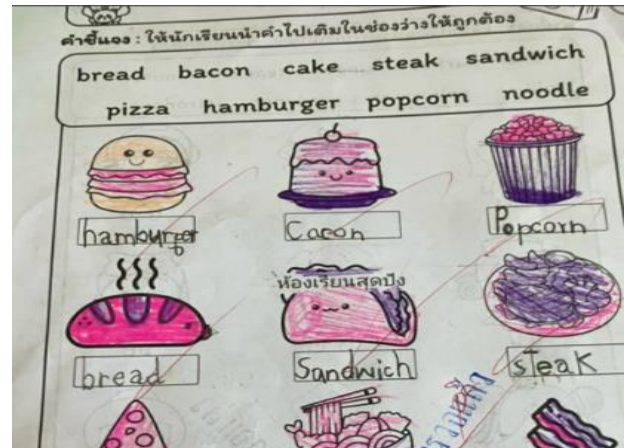 คำชี้แจง : ให้นักเรียนนำคำไปเติมในช่องว่างให้ถูกต้อง
bread bacon cake steak sandwich
pizza hamburger popcorn noodle
hamburger Cacon Popcorn
ห้องเรียนสุดปัง
bread Sandwich steak